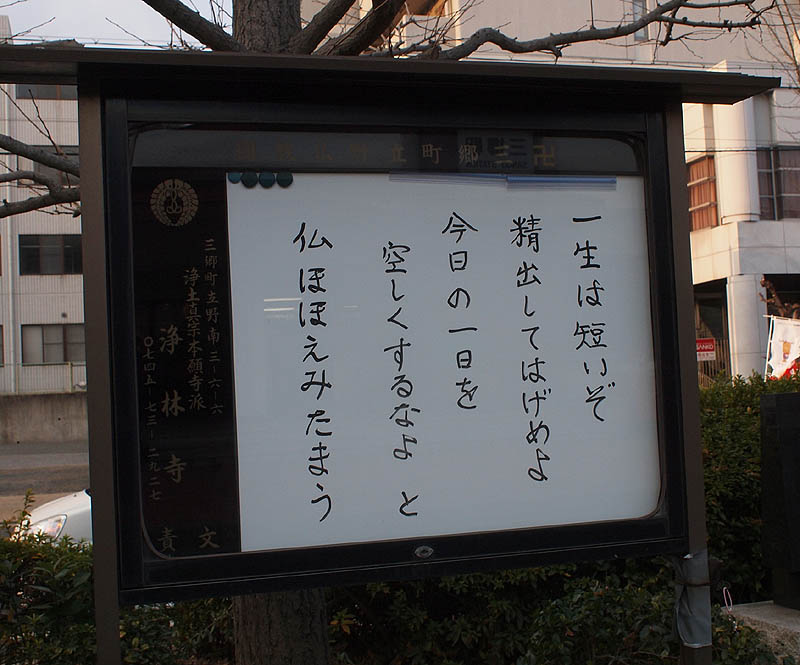 一生は短いぞ
精出してはげめよ
今日の一日を
空しくするなよ と
仏ほほえみたまう
三郷町立野南三-六-六
浄土真宗本願寺派
浄林寺
〇七四五-七三-二九二七
文責
SANKO